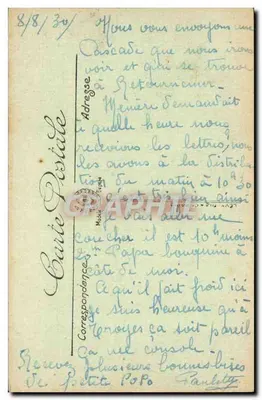 8/8/30
Nous vous envoyons une
Cascade que nous irons
voir et qui se trouve
à Retournemer.
Mémère demandait
à quelle heure nous
recevions les lettres, nous
les avons à la distribu
tion du matin à 10h30
ainsi
me
coucher il est 10h moins
20. Papa bouquine à
côté de moi.
Ce qu'il fait froid ici
je suis heureuse qu'à
Troyes ça soit pareil
ça me console.
Recevez plusieurs bonnes bises
de petite
Carte Postale
Correspondance
Adresse
CARTHAPHILIE